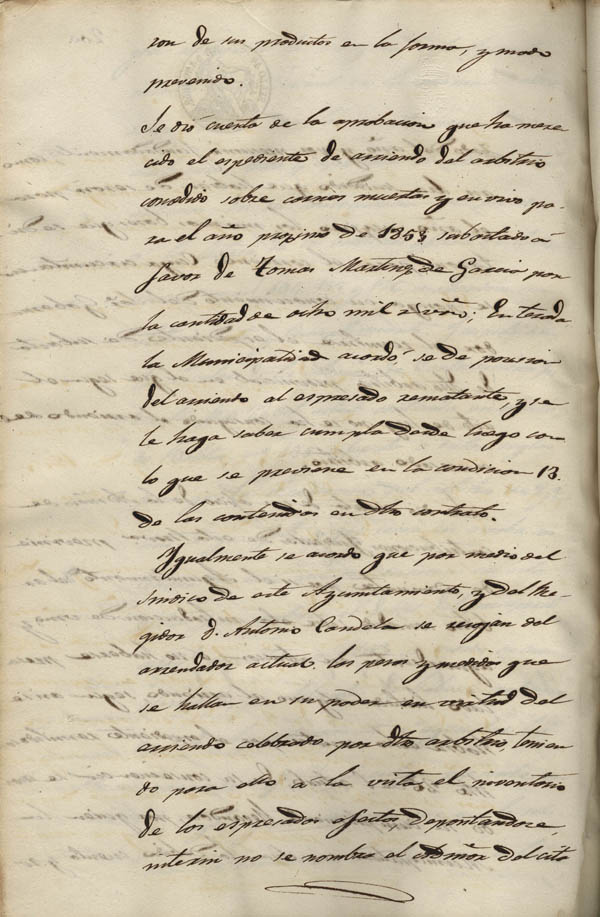 ron de sus productos en la forma, y modo
prevenido.
Se dió cuenta de la aprobacion que ha mere
cido el espediente de arriendo del arbitrio
concedido sobre carnes muertas y en vivo pa-
ra el año proximo de 1853 subastado á
favor de Tomas Martinez de Garcia por
la cantidad de ocho mil r. von; Enterada
la Municipalidad acordó, se de posesion
del arriendo al espresado rematante, y se
le haga saber cumpla desde luego con
lo que se previene en la condicion 13.
de las contenidas en dho contrato.
Igualmente se acordo que por medio del
sindico de este Ayuntamiento, y del Re-
gidor D. Antonio Candela se recojan del
arrendador actual los pesos y medidas que
se hallan en su poder en virtud del
arriendo celebrado por dho arbitrio, tenien
do para ello á la vista el inventario
de los espresados efectos depositandose,
interin no se nombra el Admor del cita